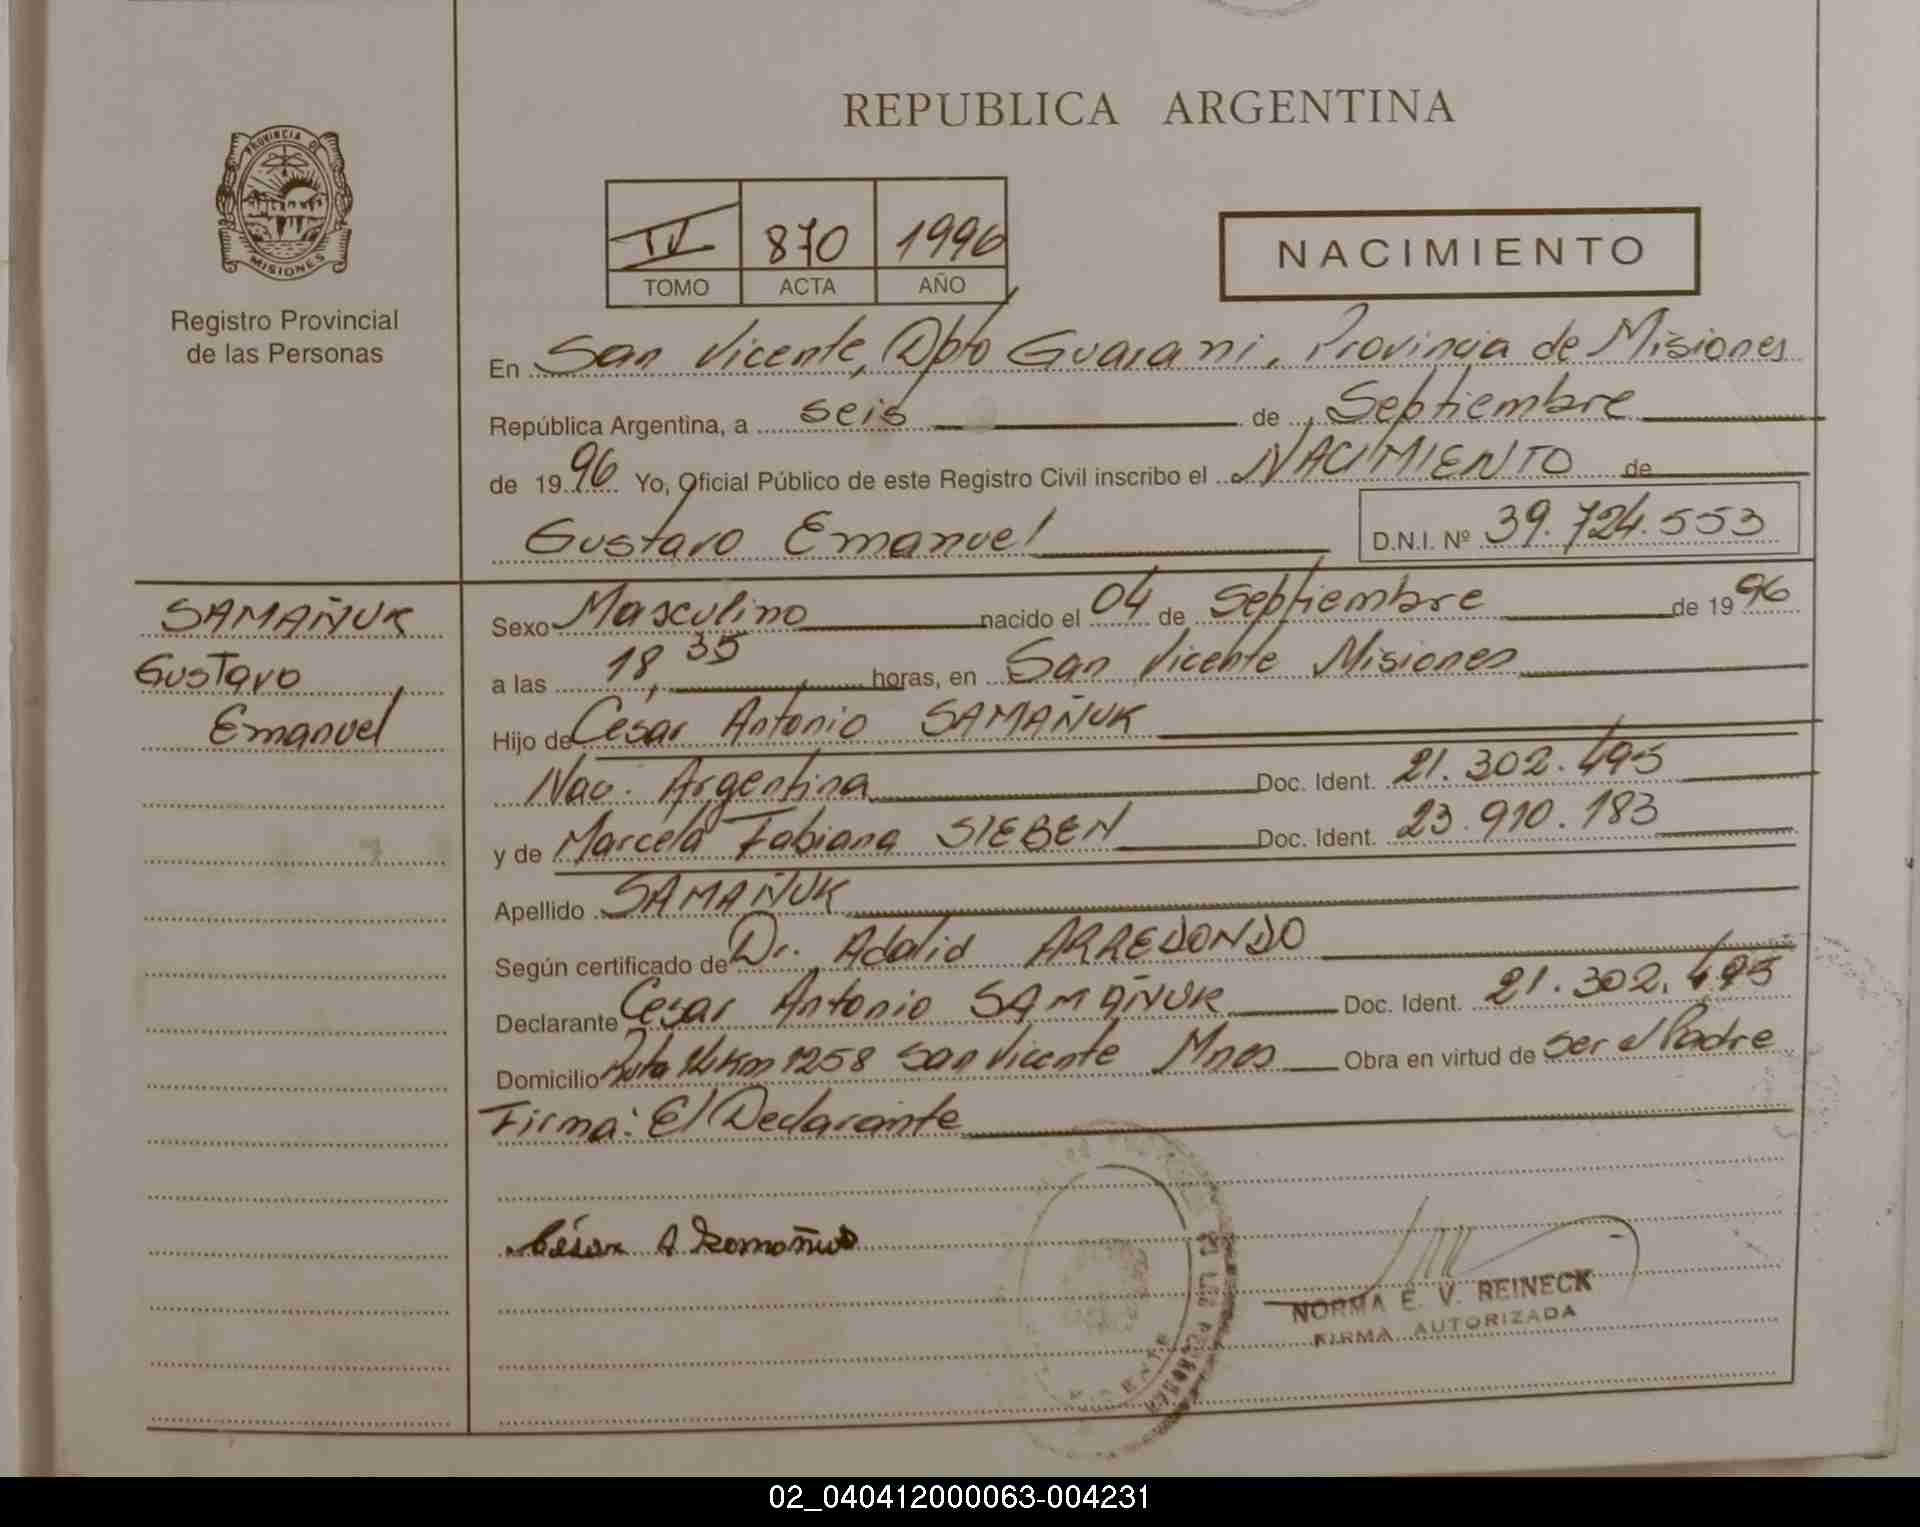 REPUBLICA ARGENTINA
PROVINCIA DE
MISIONES
Registro Provincial
de las Personas
IV 870 1996
TOMO ACTA AÑO
NACIMIENTO
En San Vicente, Dpto Guarani, Provincia de Misiones
República Argentina, a seis de Septiembre
de 1996 Yo, Oficial Público de este Registro Civil inscribo el NACIMIENTO de
Gustavo Emanuel D.N.I. Nº 39.724.553
SAMAÑUK
Gustavo
Emanuel
Sexo Masculino nacido el 04 de Septiembre de 1996
a las 18,35 horas, en San Vicente Misiones
Hijo de César Antonio SAMAÑUK
Nac. Argentina Doc. Ident. 21.302.495
y de Marcela Fabiana SIEBEN Doc. Ident. 23.910.183
Apellido SAMAÑUK
Según certificado de Dr. Adalid ARREDONDO
Declarante Cesar Antonio SAMAÑUK Doc. Ident. 21.302.495
Domicilio Ruta 14 Km 1258 San Vicente Mnes Obra en virtud de ser el Padre
Firma: El Declarante
César A Samañuk
NORMA E. V. REINECK
FIRMA AUTORIZADA
02_040412000063-004231